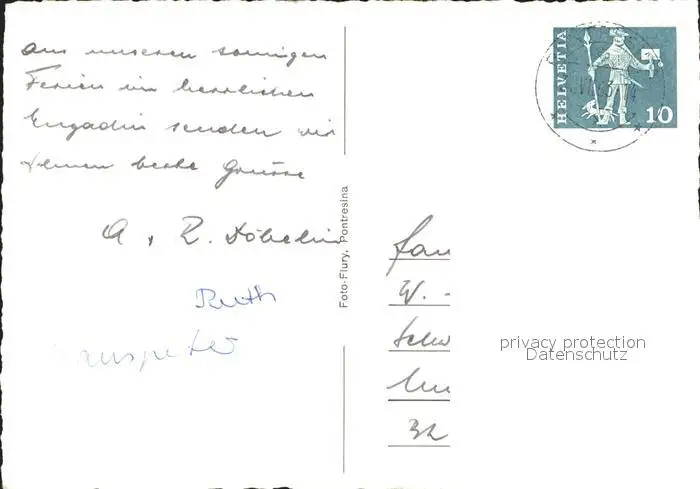 aus unseren sonnigen
Ferien im herrlichen
Engadin senden wir
Ihnen beste Grüsse
A. + R. Döbelin
Ruth
Hanspeter
Foto-Flury, Pontresina
HELVETIA
10
Fam
W. -
Schw
32
privacy protection
Datenschutz